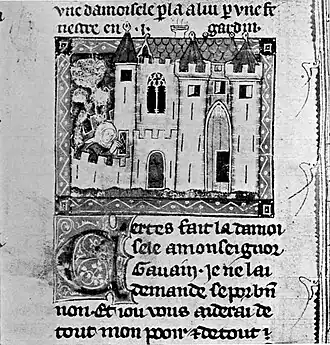 vne damoisele parla a lui par vne fe
nestre en .i. gardin.
Certes fait la damoi
sele a monseignor
Gauain . ie ne lai
demande se por bn̄
non . Et iou vous aiderai de
tout mon pooir ⁊ de tout ⁊